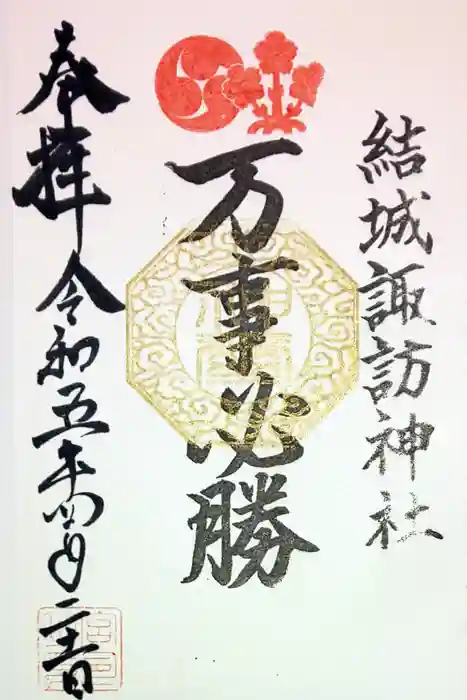 結城諏訪神社
万事必勝
奉拝 令和五年四月二十一日